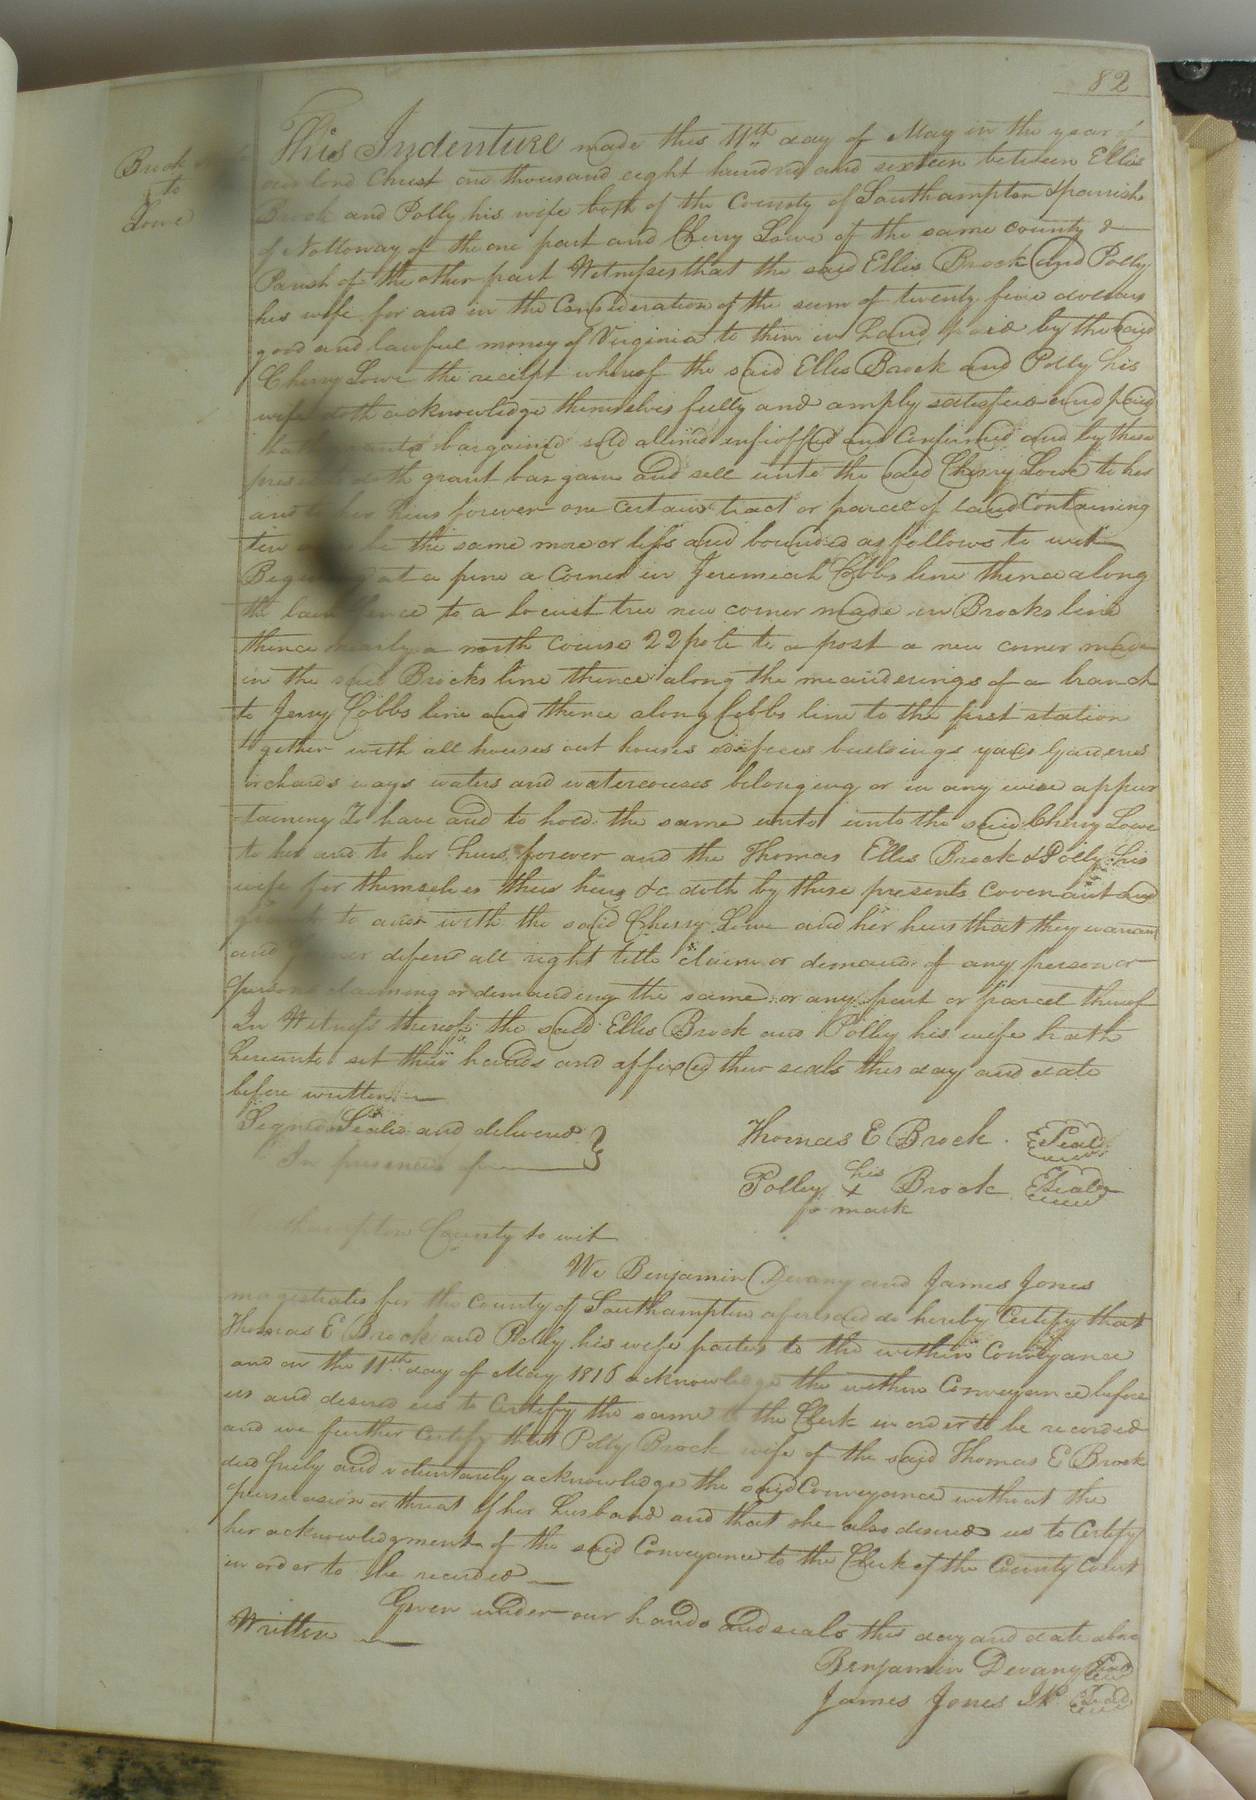 82
Brock
to
Lowe
This Indenture made this 11th day of May in the year of
our lord Christ one thousand eight hundred and sixteen between Ellis
Brock and Polly his wife both of the County of Southampton & parish
of Nottoway of the one part and Cherry Lowe of the same county &
Parish of the other part Witnesses that the said Ellis Brock and Polly
his wife for and in the Consideration of the sum of twenty five dollars
good and lawful money of Virginia to them in hand paid by the said
Cherry Lowe the receipt whereof the said Ellis Brock and Polly his
wife doth acknowledge themselves fully and amply satisfied and paid
hath bargained sold aliened infeoffed and Confirmed and by these
doth grant bargain and sell unto the said Cherry Lowe to her
and to her heirs forever one certain tract or parcel of land Containing
ten be the same more or less and bounded as follows to wit
Beginning at a pine a Corner in Jeremiah Cobbs line thence along
the fence to a locust tree new corner made in Brocks line
thence nearly a north course 22 pole to a post a new corner made
in the said Brocks line thence along the meanderings of a branch
to Jerry Cobbs line and thence along Cobbs line to the first station
together with all houses out houses edifices buildings yards Gardens
orchards ways waters and watercouses belonging or in any wise appur
-taining To have and to hold the same unto unto the said Cherry Lowe
to her and to her heirs forever and the Thomas Ellis Brock & Polly his
wife for themselves their heirs &c doth by these presents covenant and
to and with the said Cherry Lowe and her heirs that they warrant
and defend all right title claim or demand of any person or
persons claiming or demanding the same or any part or parcel thereof
In Witness thereof the said Ellis Brock and Polly his wife hath
hereunto set their hands and affixed their seals this day and date
before written
Signed Sealed and delivered
In presence of
Thomas E Brock Seal
Polly his x mark Brock Seal
County to wit
We Benjamin Devany and James Jones
magistrates for the County of Southampton aforesaid do hereby Certify that
Thomas E Brock and Polly his wife parties to the within Conveyance
and on the 11th day of May 1816 acknowledge the within Conveyance before
us and desired us to Certify the same to the Clerk in order to be recorded
and we further Certify that Polly Brock wife of the said Thomas E Brock
did freely and voluntarely acknowledge the said Conveyance without the
persuasion or threat of her husband and that she also desired us to Certify
her acknowledgment of the said Conveyance to the Clerk of the County Court
in order to be recorded
Given under our hands and seals this day and date above
Written
Benjamin Devany Seal
James Jones Seal